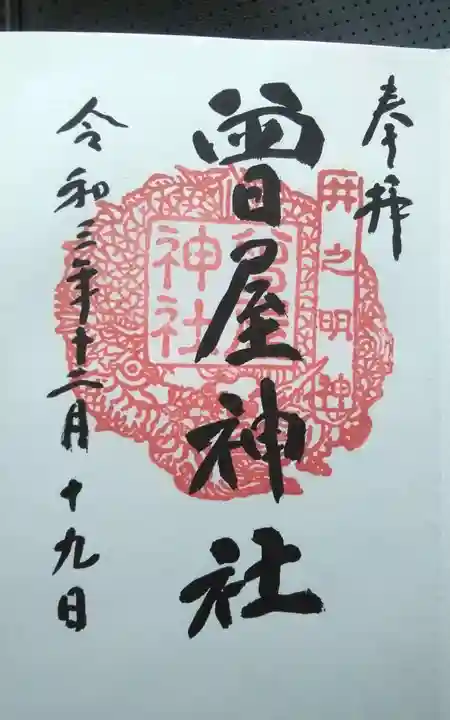 奉拝
井之明神
曽屋神社
曽屋
神社
令和三年十二月十九日